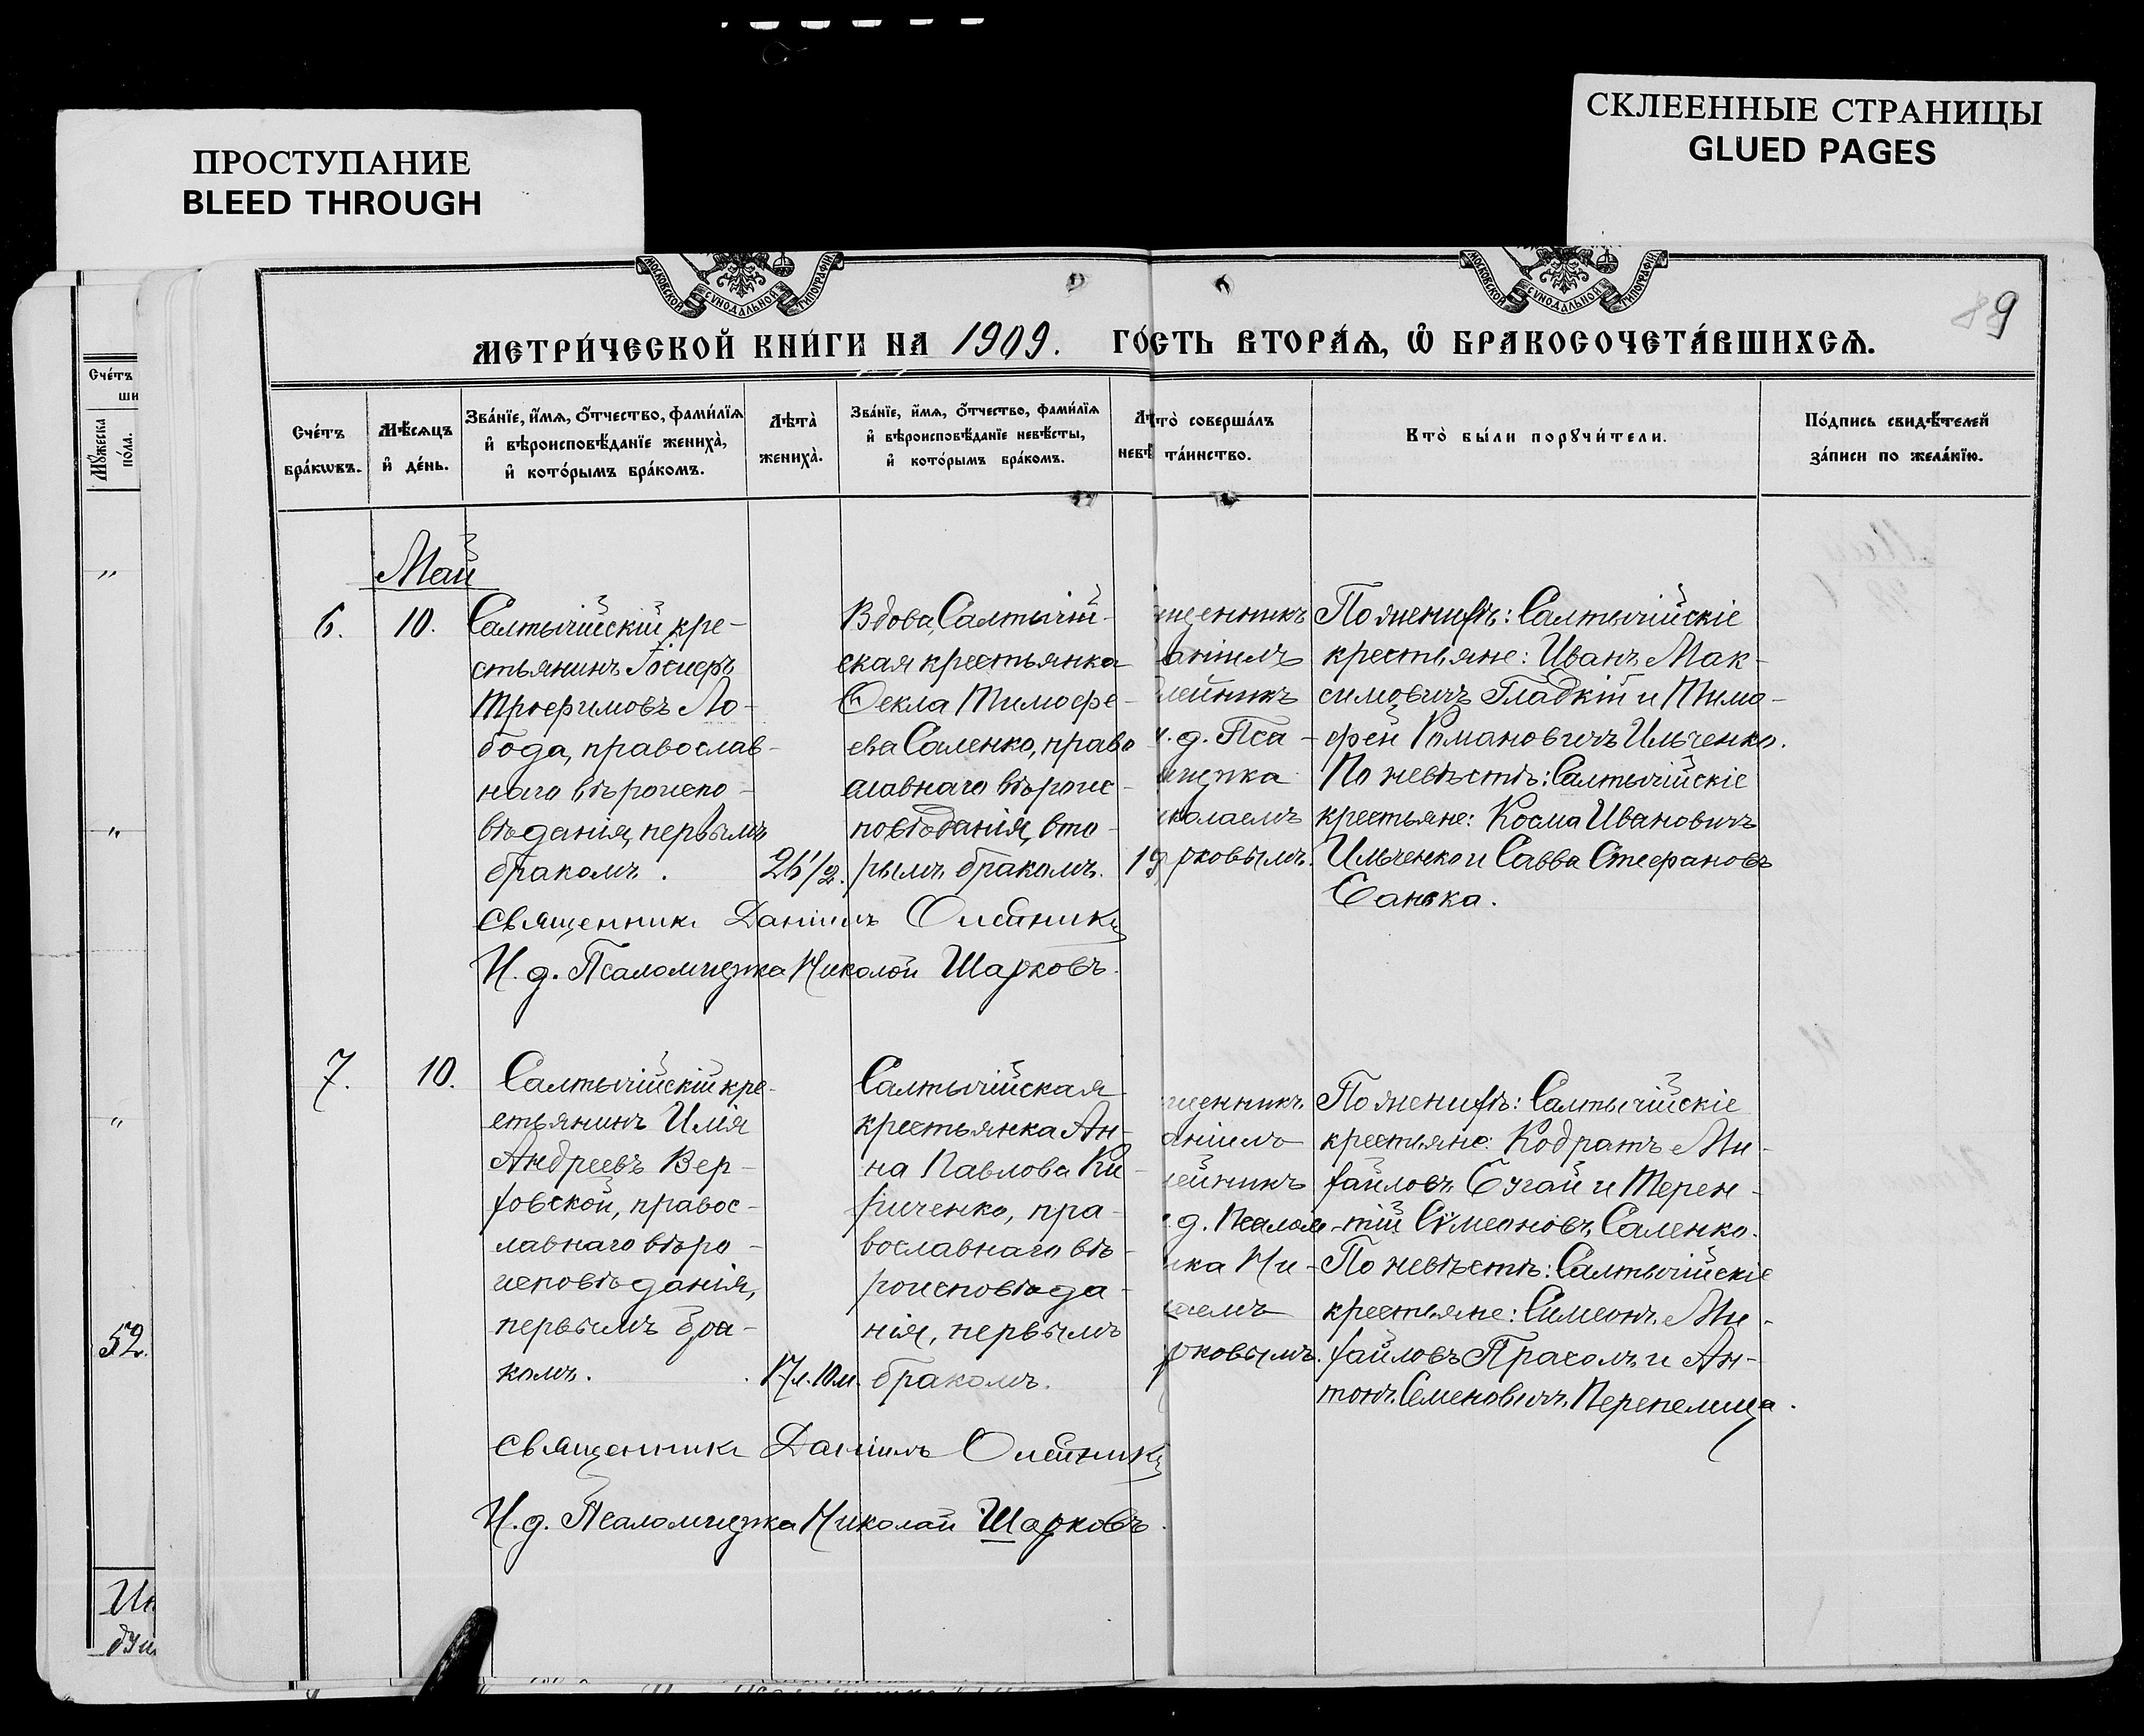 ПРОСТУПАНИЕ
BLEED THROUGH
СКЛЕЕННЫЕ СТРАНИЦЫ
GLUED PAGES
МОСКОВСКОЙ СУНОДАЛЬНОЙ ТИПОГРАФІИ
МОСКОВСКОЙ СУНОДАЛЬНОЙ ТИПОГРАФІИ
89
МЕТРИ́ЧЕСКОЙ КНИ́ГИ НА 1909. ГО́СТЬ ВТОРА́Ѧ, Ѽ БРАКОСОЧЕТА́ВШИХСѦ.
Сче́тъ
ши
Мꙋ́жеска
по́ла.
Сче́тъ
бра́кѡвъ.
Мѣ́сѧцъ
и҆ де́нь.
Зва́нїе, и҆́мѧ, ѻ҆́тчество, фами́лїѧ
и҆ вѣроисповѣ́данїе жениха̀,
и҆ кото́рымъ бра́комъ.
Лѣта̀
жениха̀.
Зва́нїе, и҆́мѧ, ѻ҆́тчество, фами́лїѧ
и҆ вѣроисповѣ́данїе невѣ́сты,
и҆ кото́рымъ бра́комъ.
Лѣ
невѣ́
то̀ соверша́лъ
та́инство.
Кто̀ бы́ли порꙋчи́тели.
По́дпись свидѣ́телей
за́писи по жела́нїю.
Май
6.
10.
Салтычійскій кре-
стьянинъ Іосифъ
Трофимовъ Ло-
бода, православ-
наго вѣроиспо-
вѣданія, первымъ
бракомъ.
26 1/2.
Вдова, Салтычій-
ская крестьянка
Ѳекла Тимофе-
ева Саленко, право
славнаго вѣроис-
повѣданія, вто-
рымъ бракомъ.
19
щенникъ
аніилъ
лейникъ
и. д. Пса-
мщика
иколаемъ
рковымъ.
По женихѣ: Салтычійскіе
крестьяне: Иванъ Мак-
симовичъ Гладкій и Тимо-
фей Романовичъ Ильченко.
По невѣстѣ: Салтычійскіе
крестьяне: Косма Ивановичъ
Ильченко и Савва Стефановъ
Священникъ Даніилъ Олейникъ
И. д. Псаломщика Николай Шарковъ.
7.
10.
Салтычійскій кре-
стьянинъ Илія
Андреевъ Вер-
ховской, правос-
лавнаго вѣро-
исповѣданія,
первымъ бра-
комъ.
17 л. 10 м.
Салтычійская
крестьянка Ан-
на Павлова Ки-
риченко, пра-
вославнаго вѣ-
роисповѣда-
нія, первымъ
бракомъ.
щенникъ
аніилъ
лейникъ
д. Псалом-
ика Ни-
лаемъ
рковымъ.
По женихѣ: Салтычійскіе
крестьяне: Кодратъ Ми-
хайловъ Бугай и Терен-
тій Сѵмеоновъ Саленко.
По невѣстѣ: Салтычійскіе
крестьяне: Симеонъ Ми-
хайловъ Прахомъ и Ан-
тонъ Семеновичъ Перепелица.
Священникъ Даніилъ Олейникъ
И. д. Псаломщика Николай Шарковъ.
52.